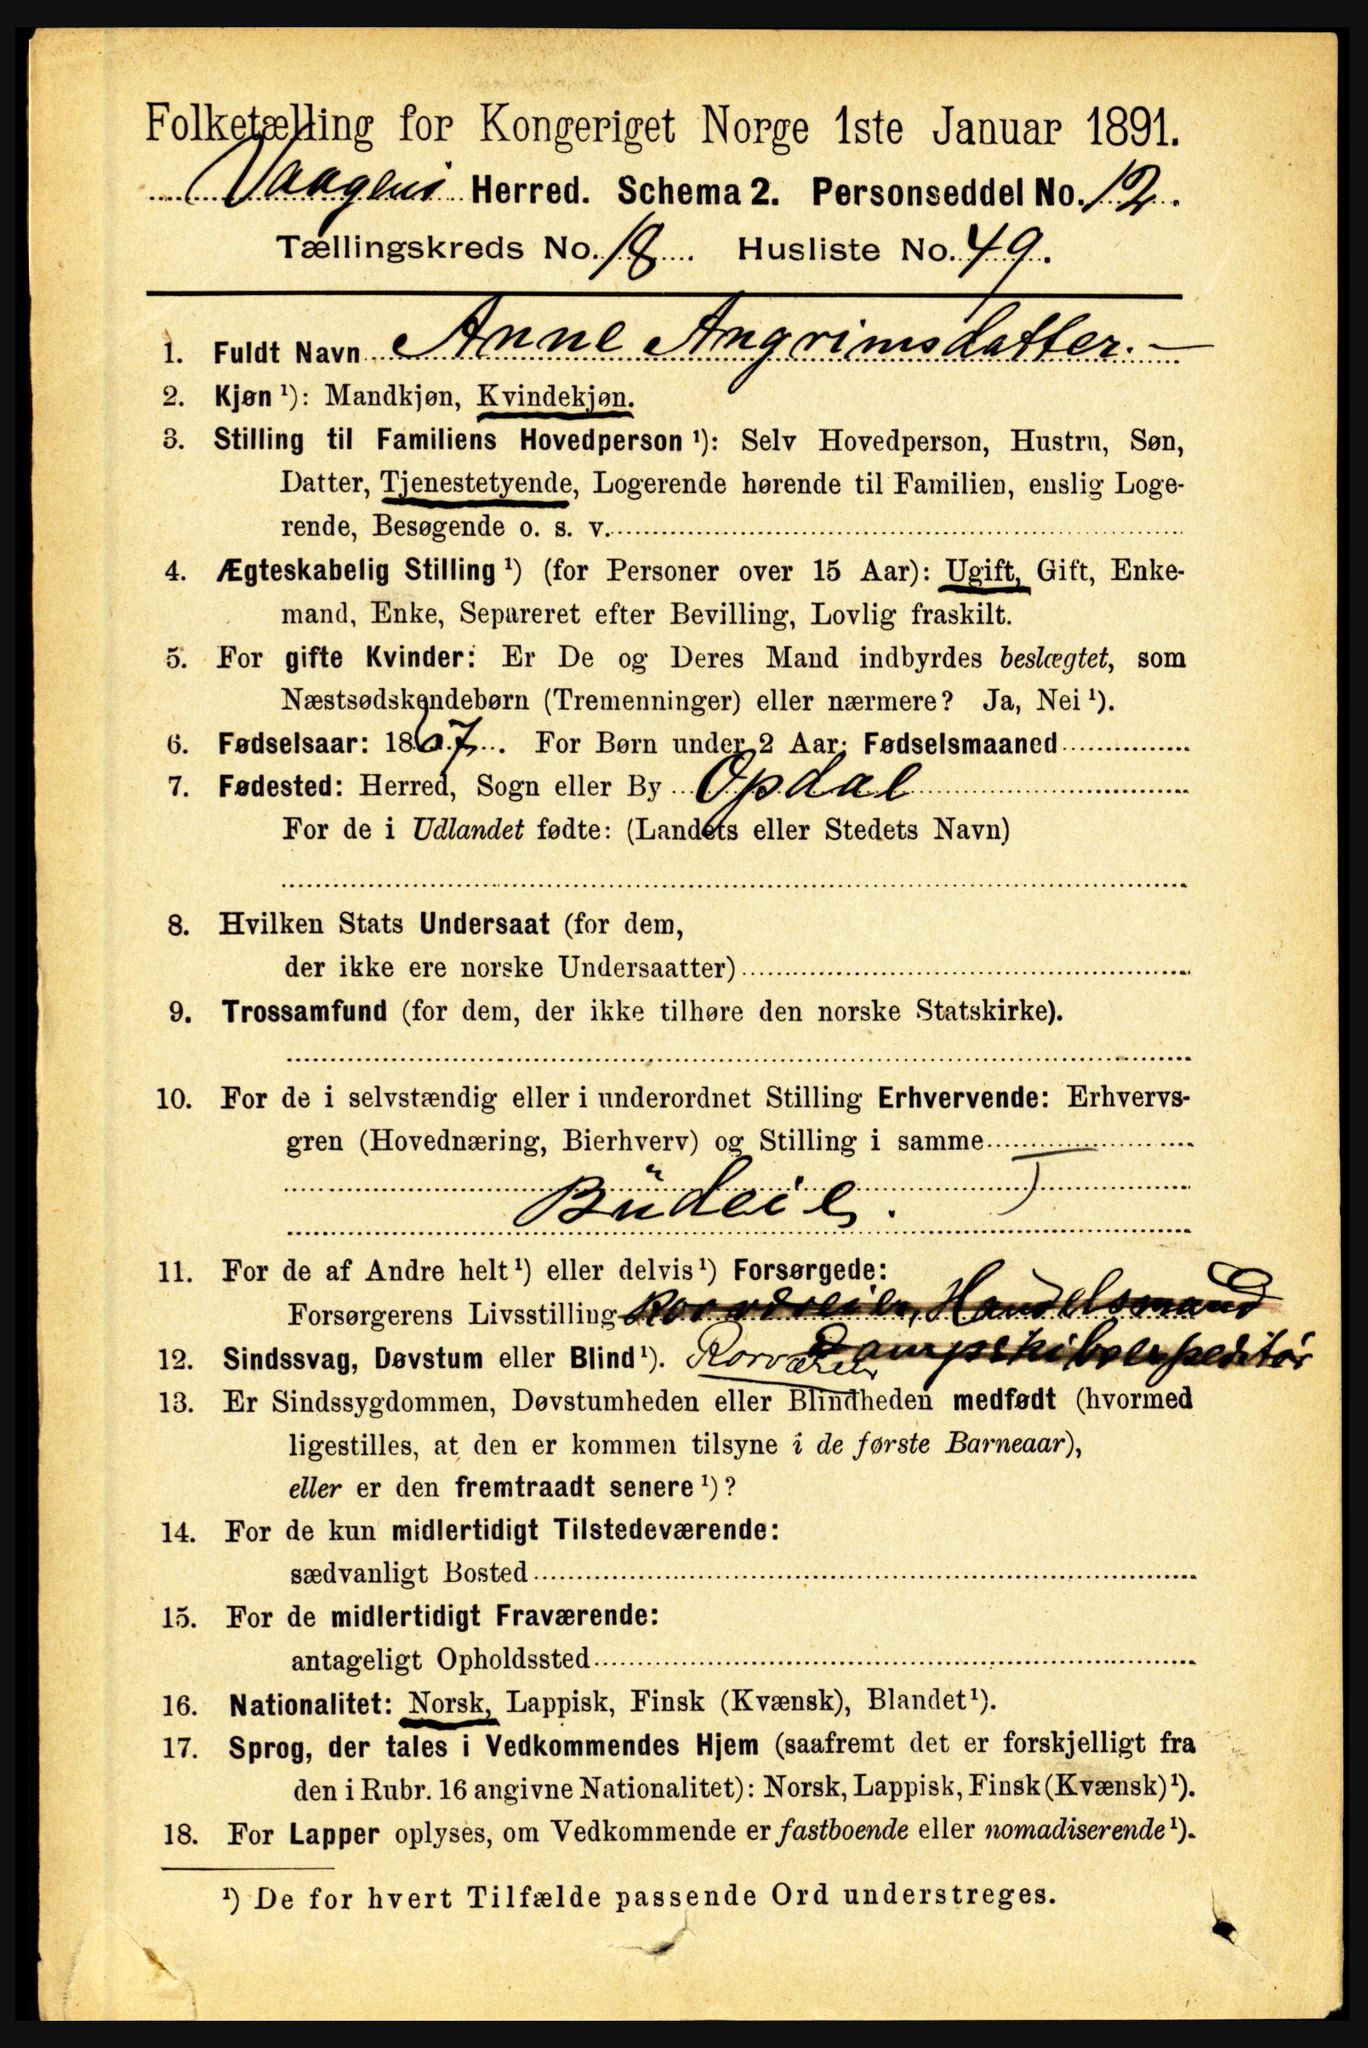 Folketælling for Kongeriget Norge 1ste Januar 1891.
Vaagens Herred. Schema 2. Personseddel No. 12.
Tællingskreds No. 18. Husliste No. 49.
1. Fuldt Navn Anne Angrimsdatter. —
2. Kjøn ¹): Mandkjøn, Kvindekjøn.
3. Stilling til Familiens Hovedperson ¹): Selv Hovedperson, Hustru, Søn,
Datter, Tjenestetyende, Logerende hørende til Familien, enslig Loge-
rende, Besøgende o. s. v.
4. Ægteskabelig Stilling ¹) (for Personer over 15 Aar): Ugift, Gift, Enke-
mand, Enke, Separeret efter Bevilling, Lovlig fraskilt.
5. For gifte Kvinder: Er De og Deres Mand indbyrdes beslægtet, som
Næstsødskendebørn (Tremenninger) eller nærmere? Ja, Nei ¹).
6. Fødselsaar: 1867. For Børn under 2 Aar: Fødselsmaaned
7. Fødested: Herred, Sogn eller By Opdal
For de i Udlandet fødte: (Landets eller Stedets Navn)
8. Hvilken Stats Undersaat (for dem,
der ikke ere norske Undersaatter)
9. Trossamfund (for dem, der ikke tilhøre den norske Statskirke).
10. For de i selvstændig eller i underordnet Stilling Erhvervende: Erhvervs-
gren (Hovednæring, Bierhverv) og Stilling i samme
Büdeie. T
11. For de af Andre helt ¹) eller delvis ¹) Forsørgede:
Forsørgerens Livsstilling Rorværeier, Handelsmand
Dampskibsexpeditør
12. Sindssvag, Døvstum eller Blind ¹). Rorværeier
13. Er Sindssygdommen, Døvstumheden eller Blindheden medfødt (hvormed
ligestilles, at den er kommen tilsyne i de første Barneaar),
eller er den fremtraadt senere ¹)?
14. For de kun midlertidigt Tilstedeværende:
sædvanligt Bosted
15. For de midlertidigt Fraværende:
antageligt Opholdssted
16. Nationalitet: Norsk, Lappisk, Finsk (Kvænsk), Blandet ¹).
17. Sprog, der tales i Vedkommendes Hjem (saafremt det er forskjelligt fra
den i Rubr. 16 angivne Nationalitet): Norsk, Lappisk, Finsk (Kvænsk) ¹).
18. For Lapper oplyses, om Vedkommende er fastboende eller nomadiserende ¹).
¹) De for hvert Tilfælde passende Ord understreges.